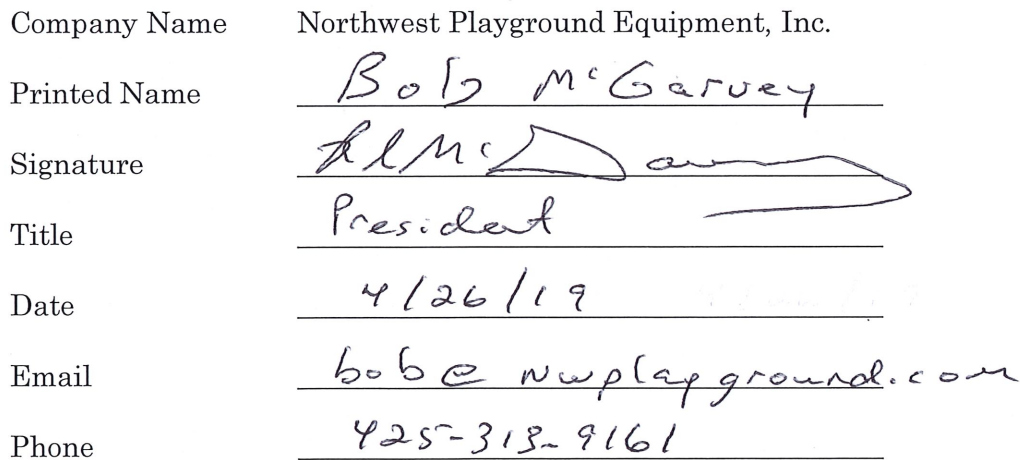 Company Name Northwest Playground Equipment, Inc.
Printed Name Bob McGarvey
Signature
Title President
Date 4/26/19
Email bob@nwplayground.com
Phone 425-313-9161